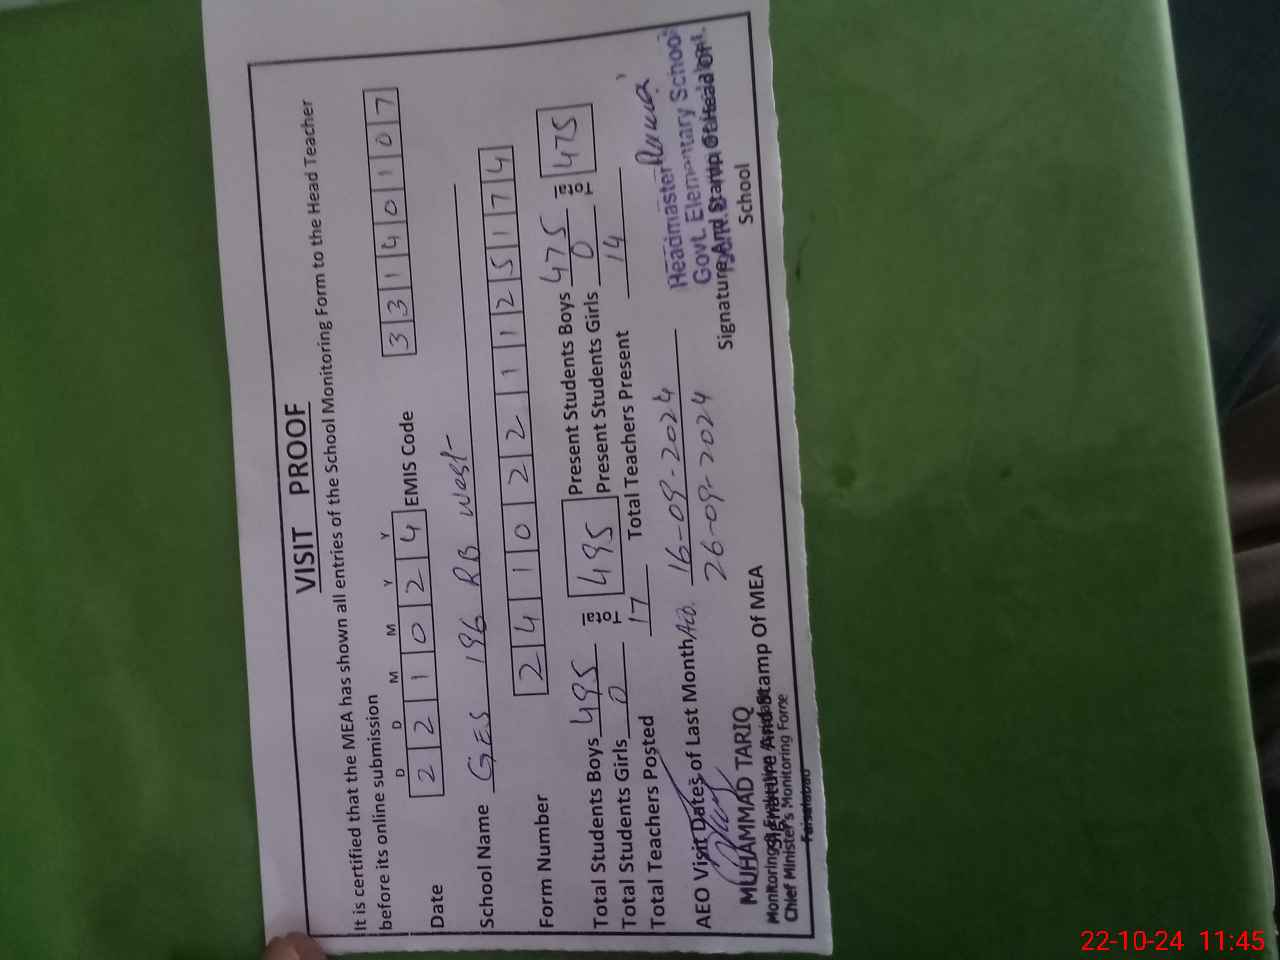 VISIT PROOF
It is certified that the MEA has shown all entries of the School Monitoring Form to the Head Teacher
before its online submission
D D M M Y Y
Date 2 2 1 0 2 4 EMIS Code 3 3 1 4 0 1 0 7
School Name GES 196 RB West
Form Number 2 4 1 0 2 2 1 1 2 5 1 7 4
Total Students Boys 495 Total 495 Present Students Boys 475 Total 475
Total Students Girls 0 Present Students Girls 0
Total Teachers Posted 17 Total Teachers Present 14
AEO Visit Dates of Last Month 16-09-2024
26-09-2024
Headmaster
Govt. Elementary School
Signature And Stamp Of Head Of
School
MUHAMMAD TARIQ
Signature And Stamp Of MEA
Monitoring & Evaluation
Chief Minister's Monitoring Force
Faisalabad
22-10-24 11:45